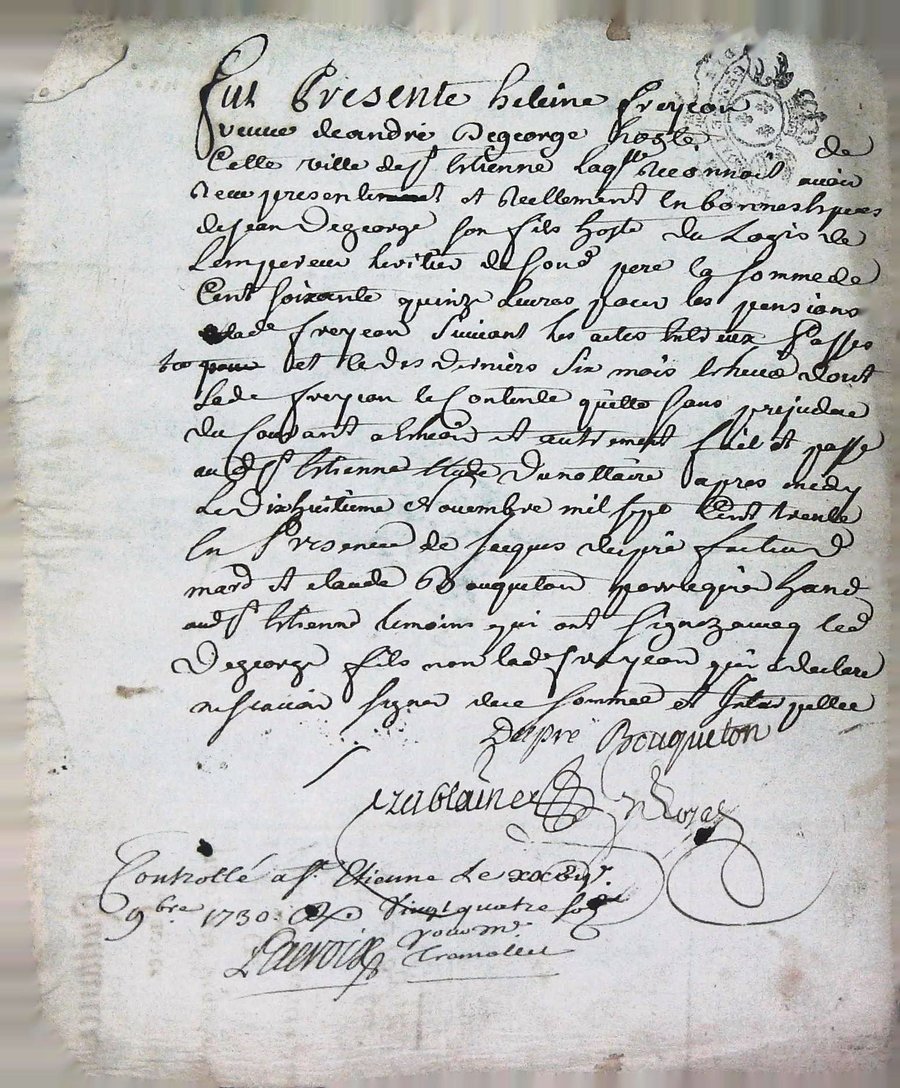 Fut Presente heleine freyjean
veuve deandré Degeorge hoste de
Cette ville de st Etienne laqlle Reconnoit avoir
Receu presentement et Reellement En bonnes Especes
de jean Degeorge son fils hoste du Logis de
Lempereur heritier de sond pere la somme de
Cent soixante quinze Livres pour les pensions
de lade freyjean suivant les actes Entreux passes
et des derniers six mois Echeus dont
Lade freyjean se contente quitte sans prejudice
du Courant a Echeoir et autrement fait et passé
aud st Etienne Etude Dunottaire apres midy
Le Dixhuitieme Novembre mil sept Cent trente
En Presence de jacques dupré
mard et claude Bouqueton hand
aud st Etienne temoins qui ont signez avecq led
Degeorge fils non lade freyjean qui a declaré
ne scavoir signer de ce sommée et Interpellée
Dupré Bouqueton
Controllé a st Etienne Le
9bre 1730 Vingt quatre sols
Lacroix